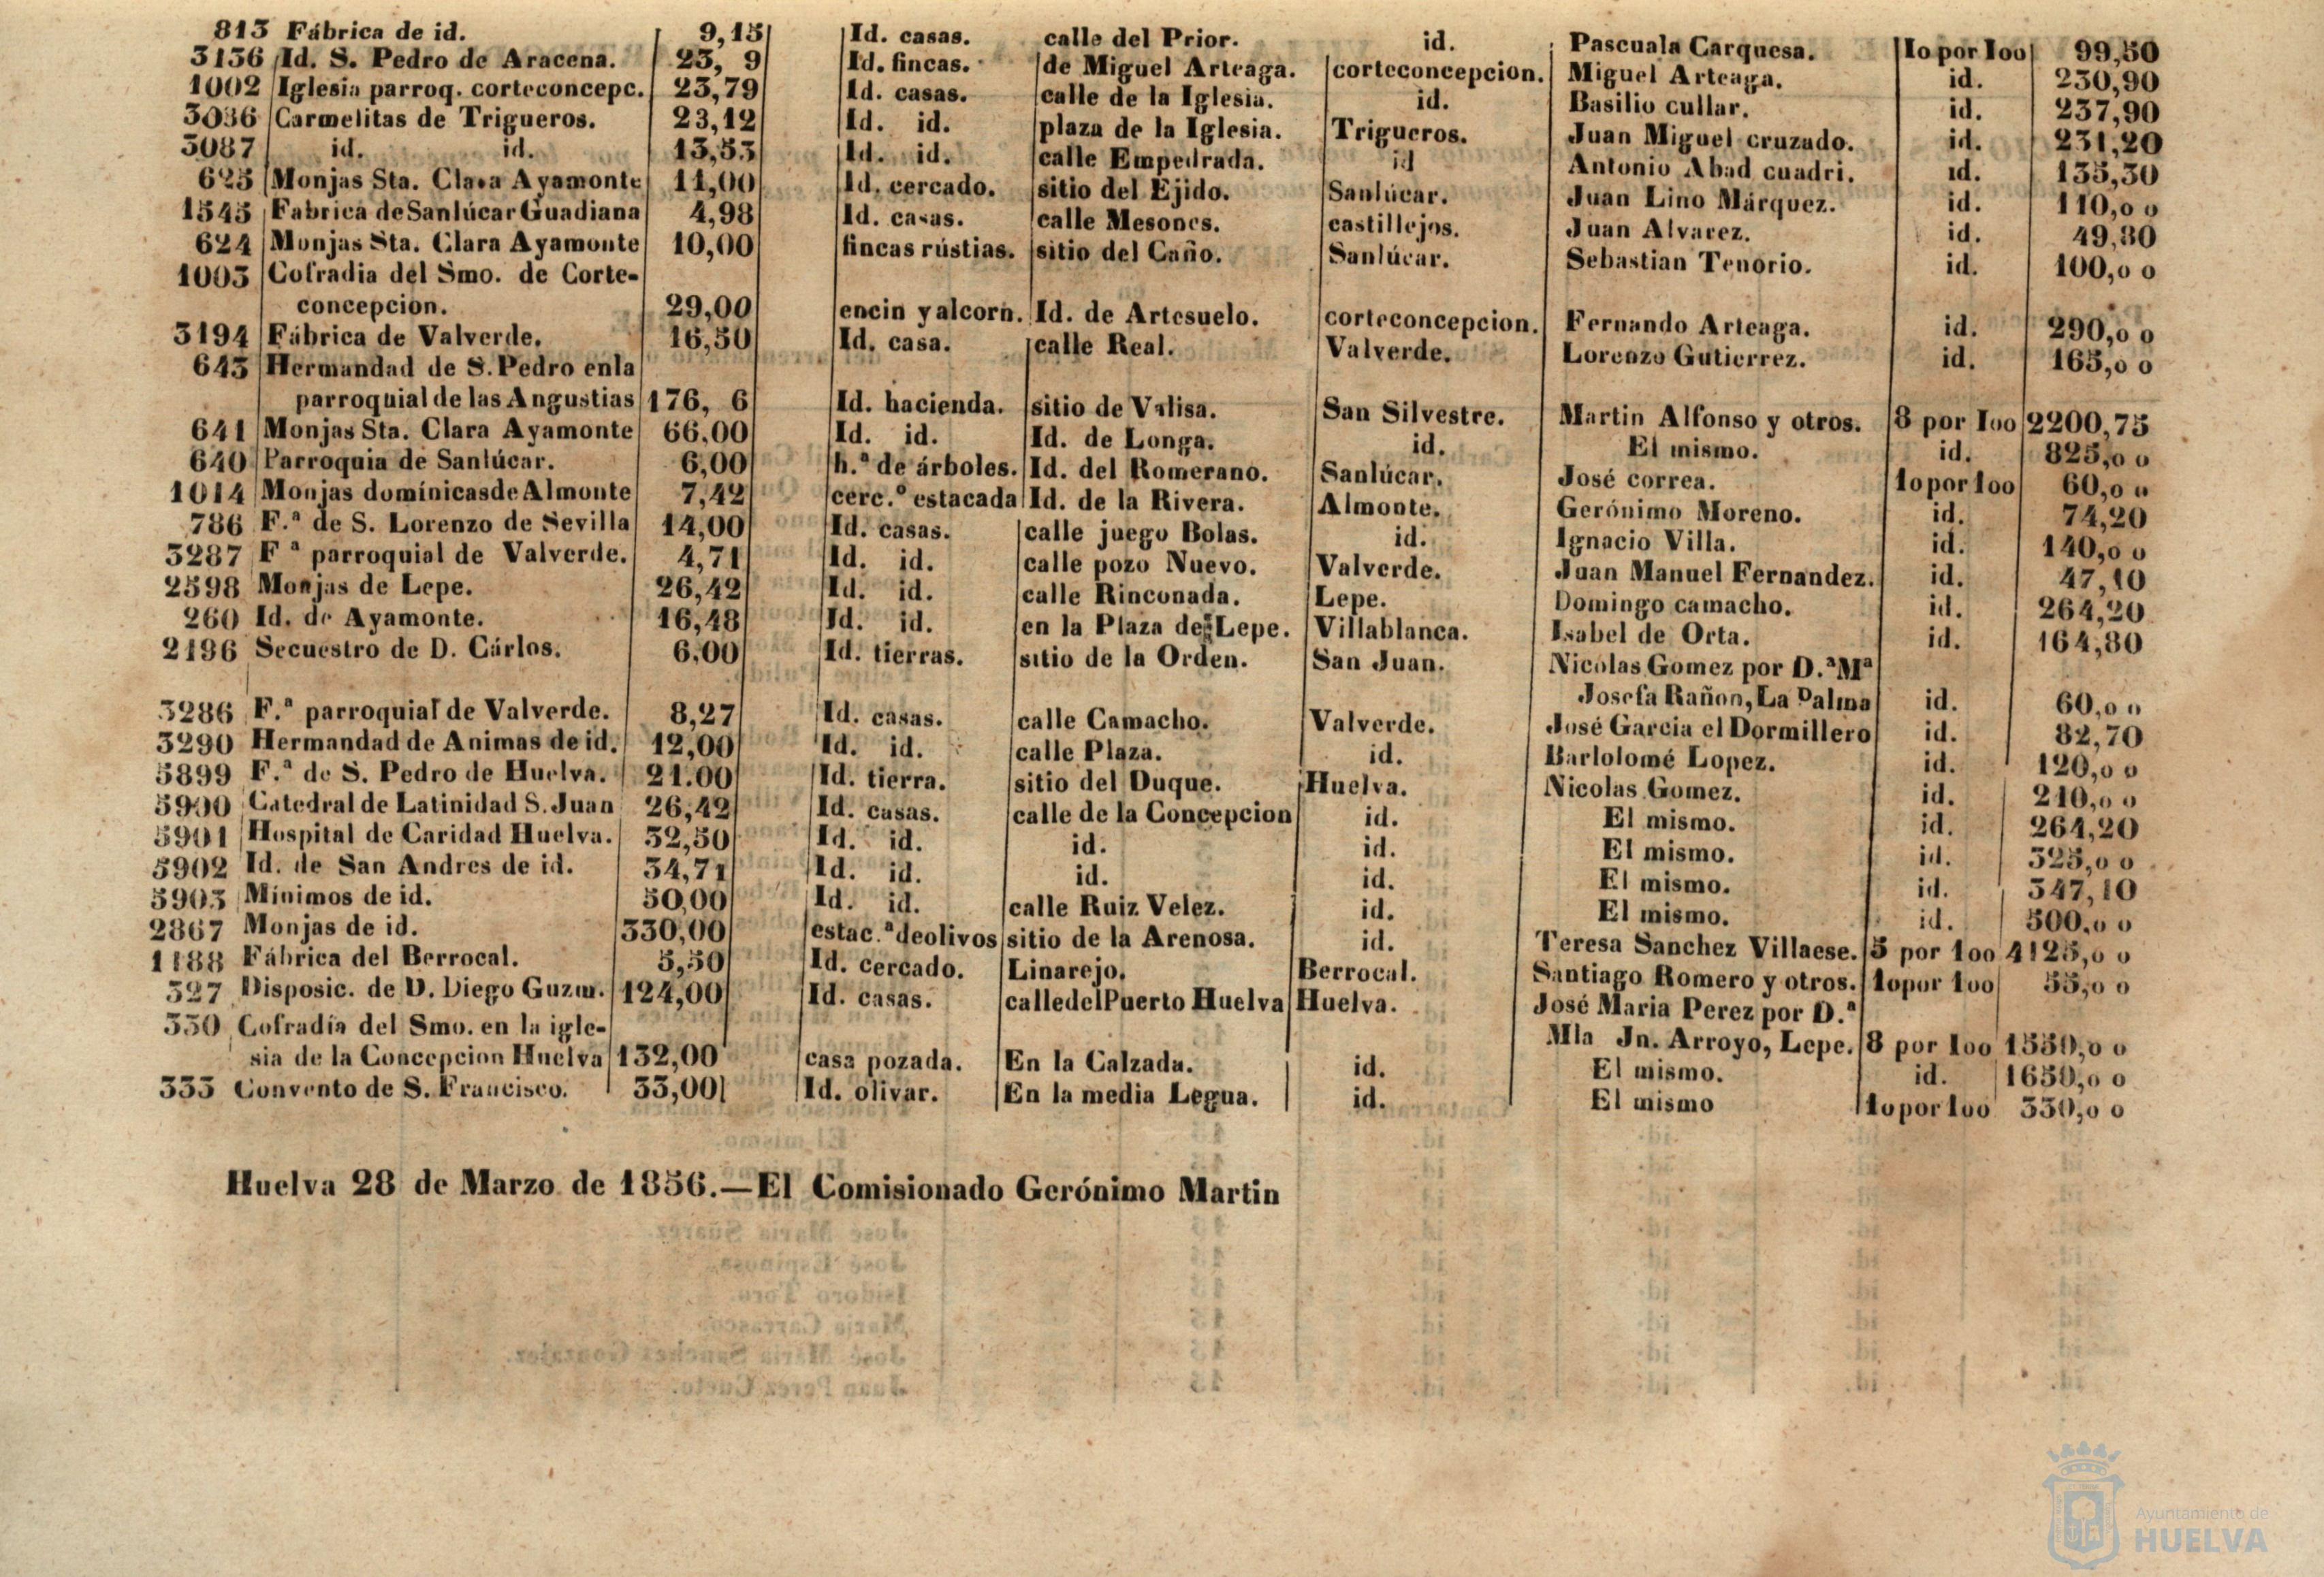 813 Fábrica de id. 9,15 Id. casas. calle del Prior. id. Pascuala Carquesa. 1o por 1oo 99,50
3136 Id. S. Pedro de Aracena. 23, 9 Id. fincas. de Miguel Arteaga. corteconcepcion. Miguel Arteaga. id. 230,90
1002 Iglesia parroq. corteconcepc. 23,79 Id. casas. calle de la Iglesia. id. Basilio cullar. id. 237,90
3036 Carmelitas de Trigueros. 23,12 Id. id. plaza de la Iglesia. Trigueros. Juan Miguel cruzado. id. 231,20
3087 id. id. 13,53 Id. id. calle Empedrada. id Antonio Abad cuadri. id. 135,30
625 Monjas Sta. Clara Ayamonte 11,00 Id. cercado. sitio del Ejido. Sanlúcar. Juan Lino Márquez. id. 110,o o
1545 Fabrica de Sanlúcar Guadiana 4,98 Id. casas. calle Mesones. castillejos. Juan Alvarez. id. 49,80
624 Monjas Sta. Clara Ayamonte 10,00 fincas rústias. sitio del Caño. Sanlúcar. Sebastian Tenorio. id. 100,o o
1003 Cofradia del Smo. de Corte-
concepcion. 29,00 encin y alcorn. Id. de Artesuelo. corteconcepcion. Fernando Arteaga. id. 290,o o
3194 Fábrica de Valverde. 16,50 Id. casa. calle Real. Valverde. Lorenzo Gutierrez. id. 165,o o
643 Hermandad de S. Pedro en la
parroquial de las Angustias 176, 6 Id. hacienda. sitio de Valisa. San Silvestre. Martin Alfonso y otros. 8 por 1oo 2200,75
641 Monjas Sta. Clara Ayamonte 66,00 Id. id. Id. de Longa. id. El mismo. id. 825,o o
640 Parroquia de Sanlúcar. 6,00 h.ª de árboles. Id. del Romerano. Sanlúcar. José correa. 1o por 1oo 60,o o
1014 Monjas domínicas de Almonte 7,42 cerc.º estacada Id. de la Rivera. Almonte. Gerónimo Moreno. id. 74,20
786 F.ª de S. Lorenzo de Sevilla 14,00 Id. casas. calle juego Bolas. id. Ignacio Villa. id. 140,o o
3287 F ª parroquial de Valverde. 4,71 Id. id. calle pozo Nuevo. Valverde. Juan Manuel Fernandez. id. 47,10
2598 Monjas de Lepe. 26,42 Id. id. calle Rinconada. Lepe. Domingo camacho. id. 264,20
260 Id. de Ayamonte. 16,48 Id. id. en la Plaza de Lepe. Villablanca. Isabel de Orta. id. 164,80
2196 Secuestro de D. Cárlos. 6,00 Id. tierras. sitio de la Orden. San Juan. Nicolas Gomez por D.ª Mª
Josefa Rañon, La Palma id. 60,o o
3286 F.ª parroquial de Valverde. 8,27 Id. casas. calle Camacho. Valverde. José Garcia el Dormillero id. 82,70
3290 Hermandad de Animas de id. 12,00 Id. id. calle Plaza. id. Barlolomé Lopez. id. 120,o o
3899 F.ª de S. Pedro de Huelva. 21.00 Id. tierra. sitio del Duque. Huelva. Nicolas Gomez. id. 210,o o
3900 Catedral de Latinidad S. Juan 26,42 Id. casas. calle de la Concepcion id. El mismo. id. 264,20
3901 Hospital de Caridad Huelva. 32,50 Id. id. id. id. El mismo. id. 325,o o
3902 Id. de San Andres de id. 34,71 Id. id. id. id. El mismo. id. 347,10
3903 Mínimos de id. 50,00 Id. id. calle Ruiz Velez. id. El mismo. id. 500,o o
2867 Monjas de id. 330,00 estac.ª de olivos sitio de la Arenosa. id. Teresa Sanchez Villaese. 5 por 1oo 4125,o o
1188 Fábrica del Berrocal. 5,50 Id. cercado. Linarejo. Berrocal. Santiago Romero y otros. 1o por 1oo 55,o o
327 Disposic. de D. Diego Guzm. 124,00 Id. casas. calle del Puerto Huelva Huelva. José Maria Perez por D.ª
Mla Jn. Arroyo, Lepe. 8 por 1oo 1550,o o
330 Cofradía del Smo. en la igle-
sia de la Concepcion Huelva 132,00 casa pozada. En la Calzada. id. El mismo. id. 1650,o o
333 Convento de S. Francisco. 33,00 Id. olivar. En la media Legua. id. El mismo 1o por 1oo 330,o o
Huelva 28 de Marzo de 1856.—El Comisionado Gerónimo Martin
Ayuntamiento de
HUELVA